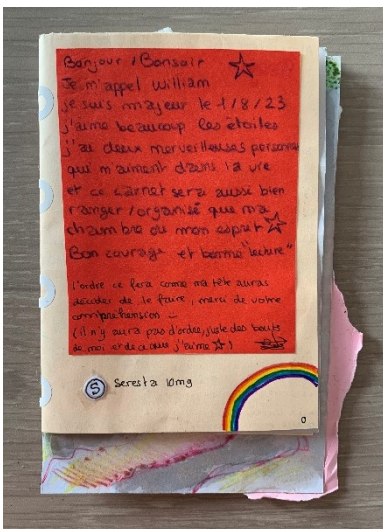 Bonjour / Bonsoir
Je m'appel William
je suis majeur le 1/8/23
j'aime beaucoup les étoiles
j'ai deux merveilleuses personnes
qui m'aiment dans la vie
et ce carnet sera aussi bien
ranger/organisé que ma
chambre ou mon esprit
Bon courage et bonne "lecture"
l'ordre ce fera comme ma tête auras
décider de le faire, merci de votre
compréhension
(il n'y aura pas d'ordre, juste des bouts
de moi et de ce que j'aime)
S Seresta 10mg
0